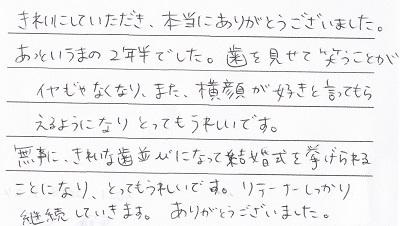 きれいにしていただき、本当にありがとうございました。
あっというまの2年半でした。歯を見せて笑うことが
イヤじゃなくなり、また、横顔が好きと言ってもら
えるようになりとってもうれしいです。
無事に、きれいな歯並びになって結婚式を挙げられる
ことになり、とってもうれしいです。リテーナーしっかり
継続していきます。ありがとうございました。